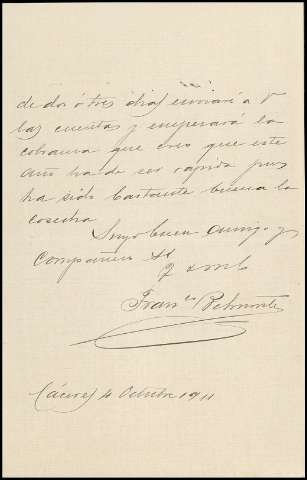 de dos ó tres dias enviaré a V
las cuentas y empezará la
cobranza que creo que este
año ha de ser rápida pues
ha sido bastante buena la
cosecha
Suyo buen amigo y
Compañero
q s m b
Fran.co Belmonte
Cáceres 4 Octubre 1911